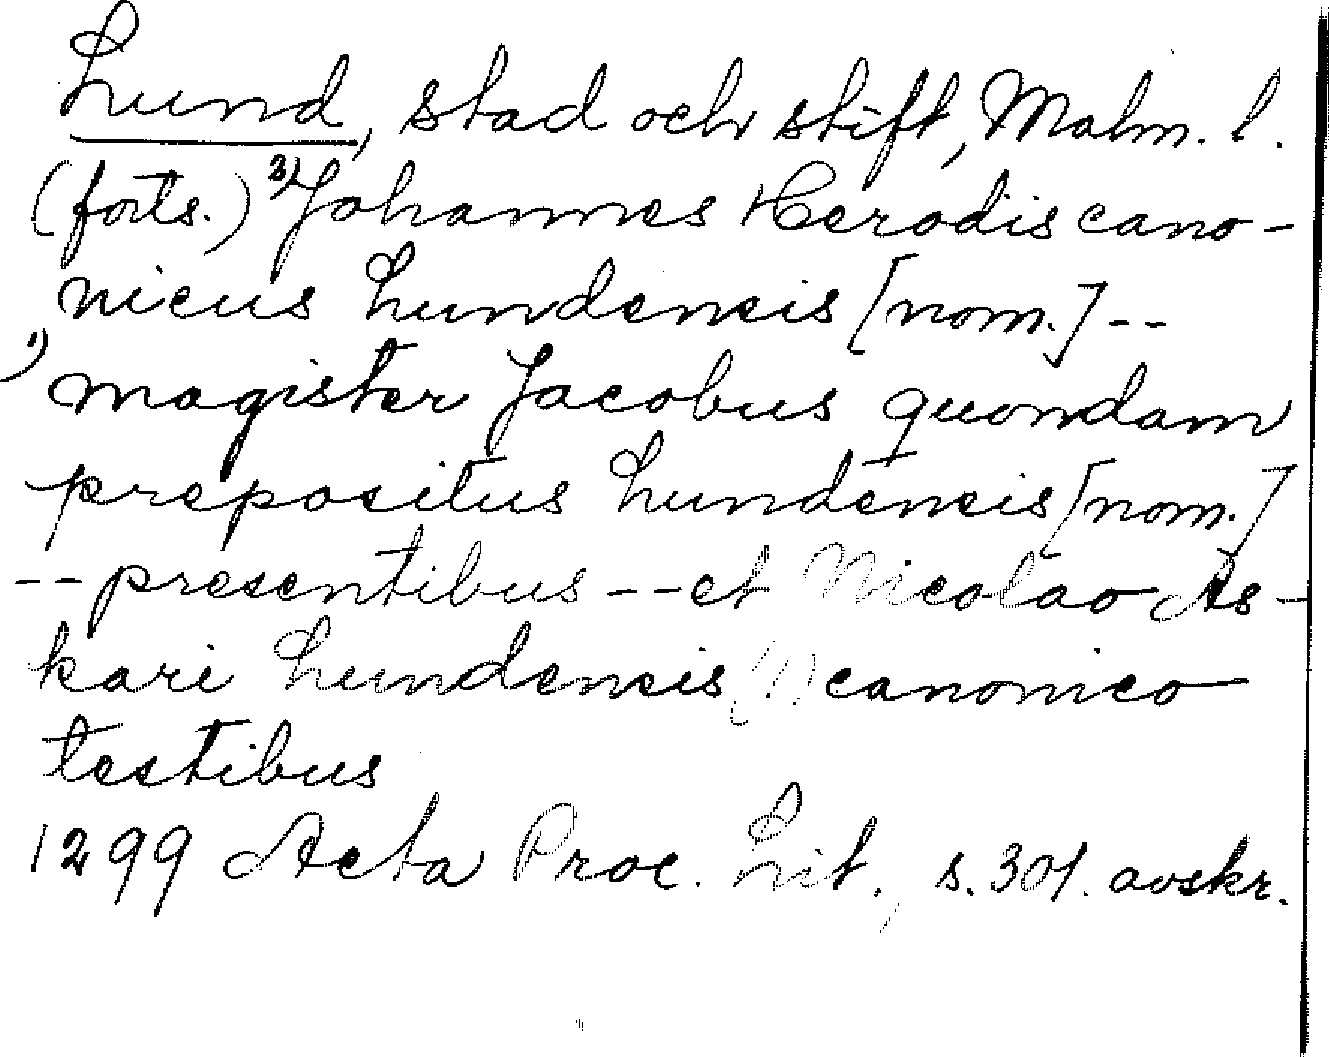 Lund, stad och stift, Malm. l.
(forts.) 2) Johannes Herodis cano-
nicus Lundensis [nom.] --
1) magister Jacobus quondam
prepositus Lundensis [nom.]
-- presentibus -- et Nicolao As-
kari Lundensis (!) canonico
testibus
1299 Acta Proc. Lit., s. 301. avskr.